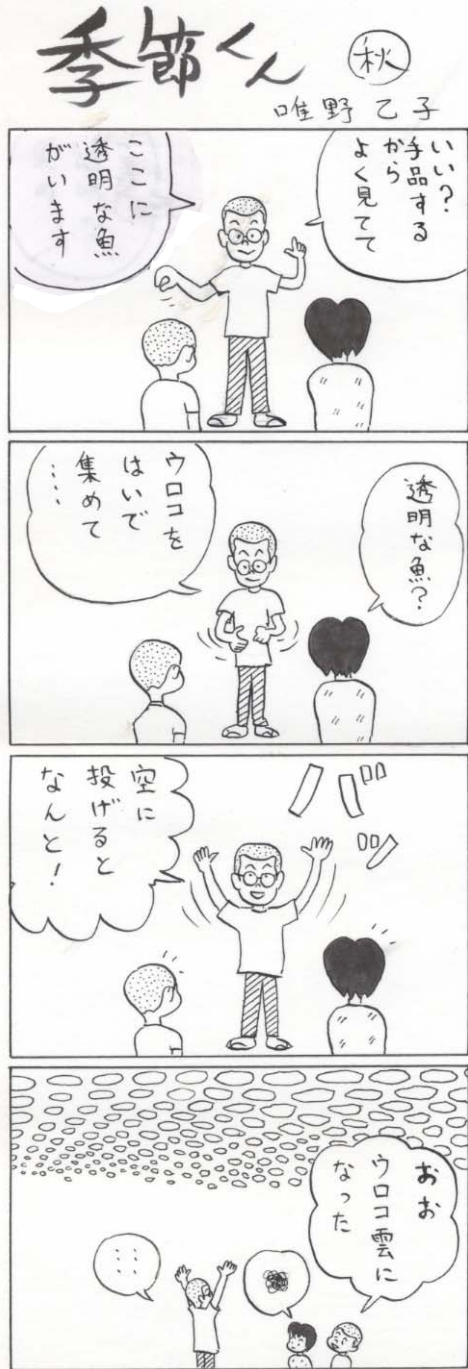 季節くん
秋
唯野乙子
いい?
手品する
から
よく見てて
ここに
透明な魚
がいます
透明な魚?
ウロコを
はいで
集めて
……
バッ
空に
投げると
なんと!
おお
ウロコ雲に
なった
……